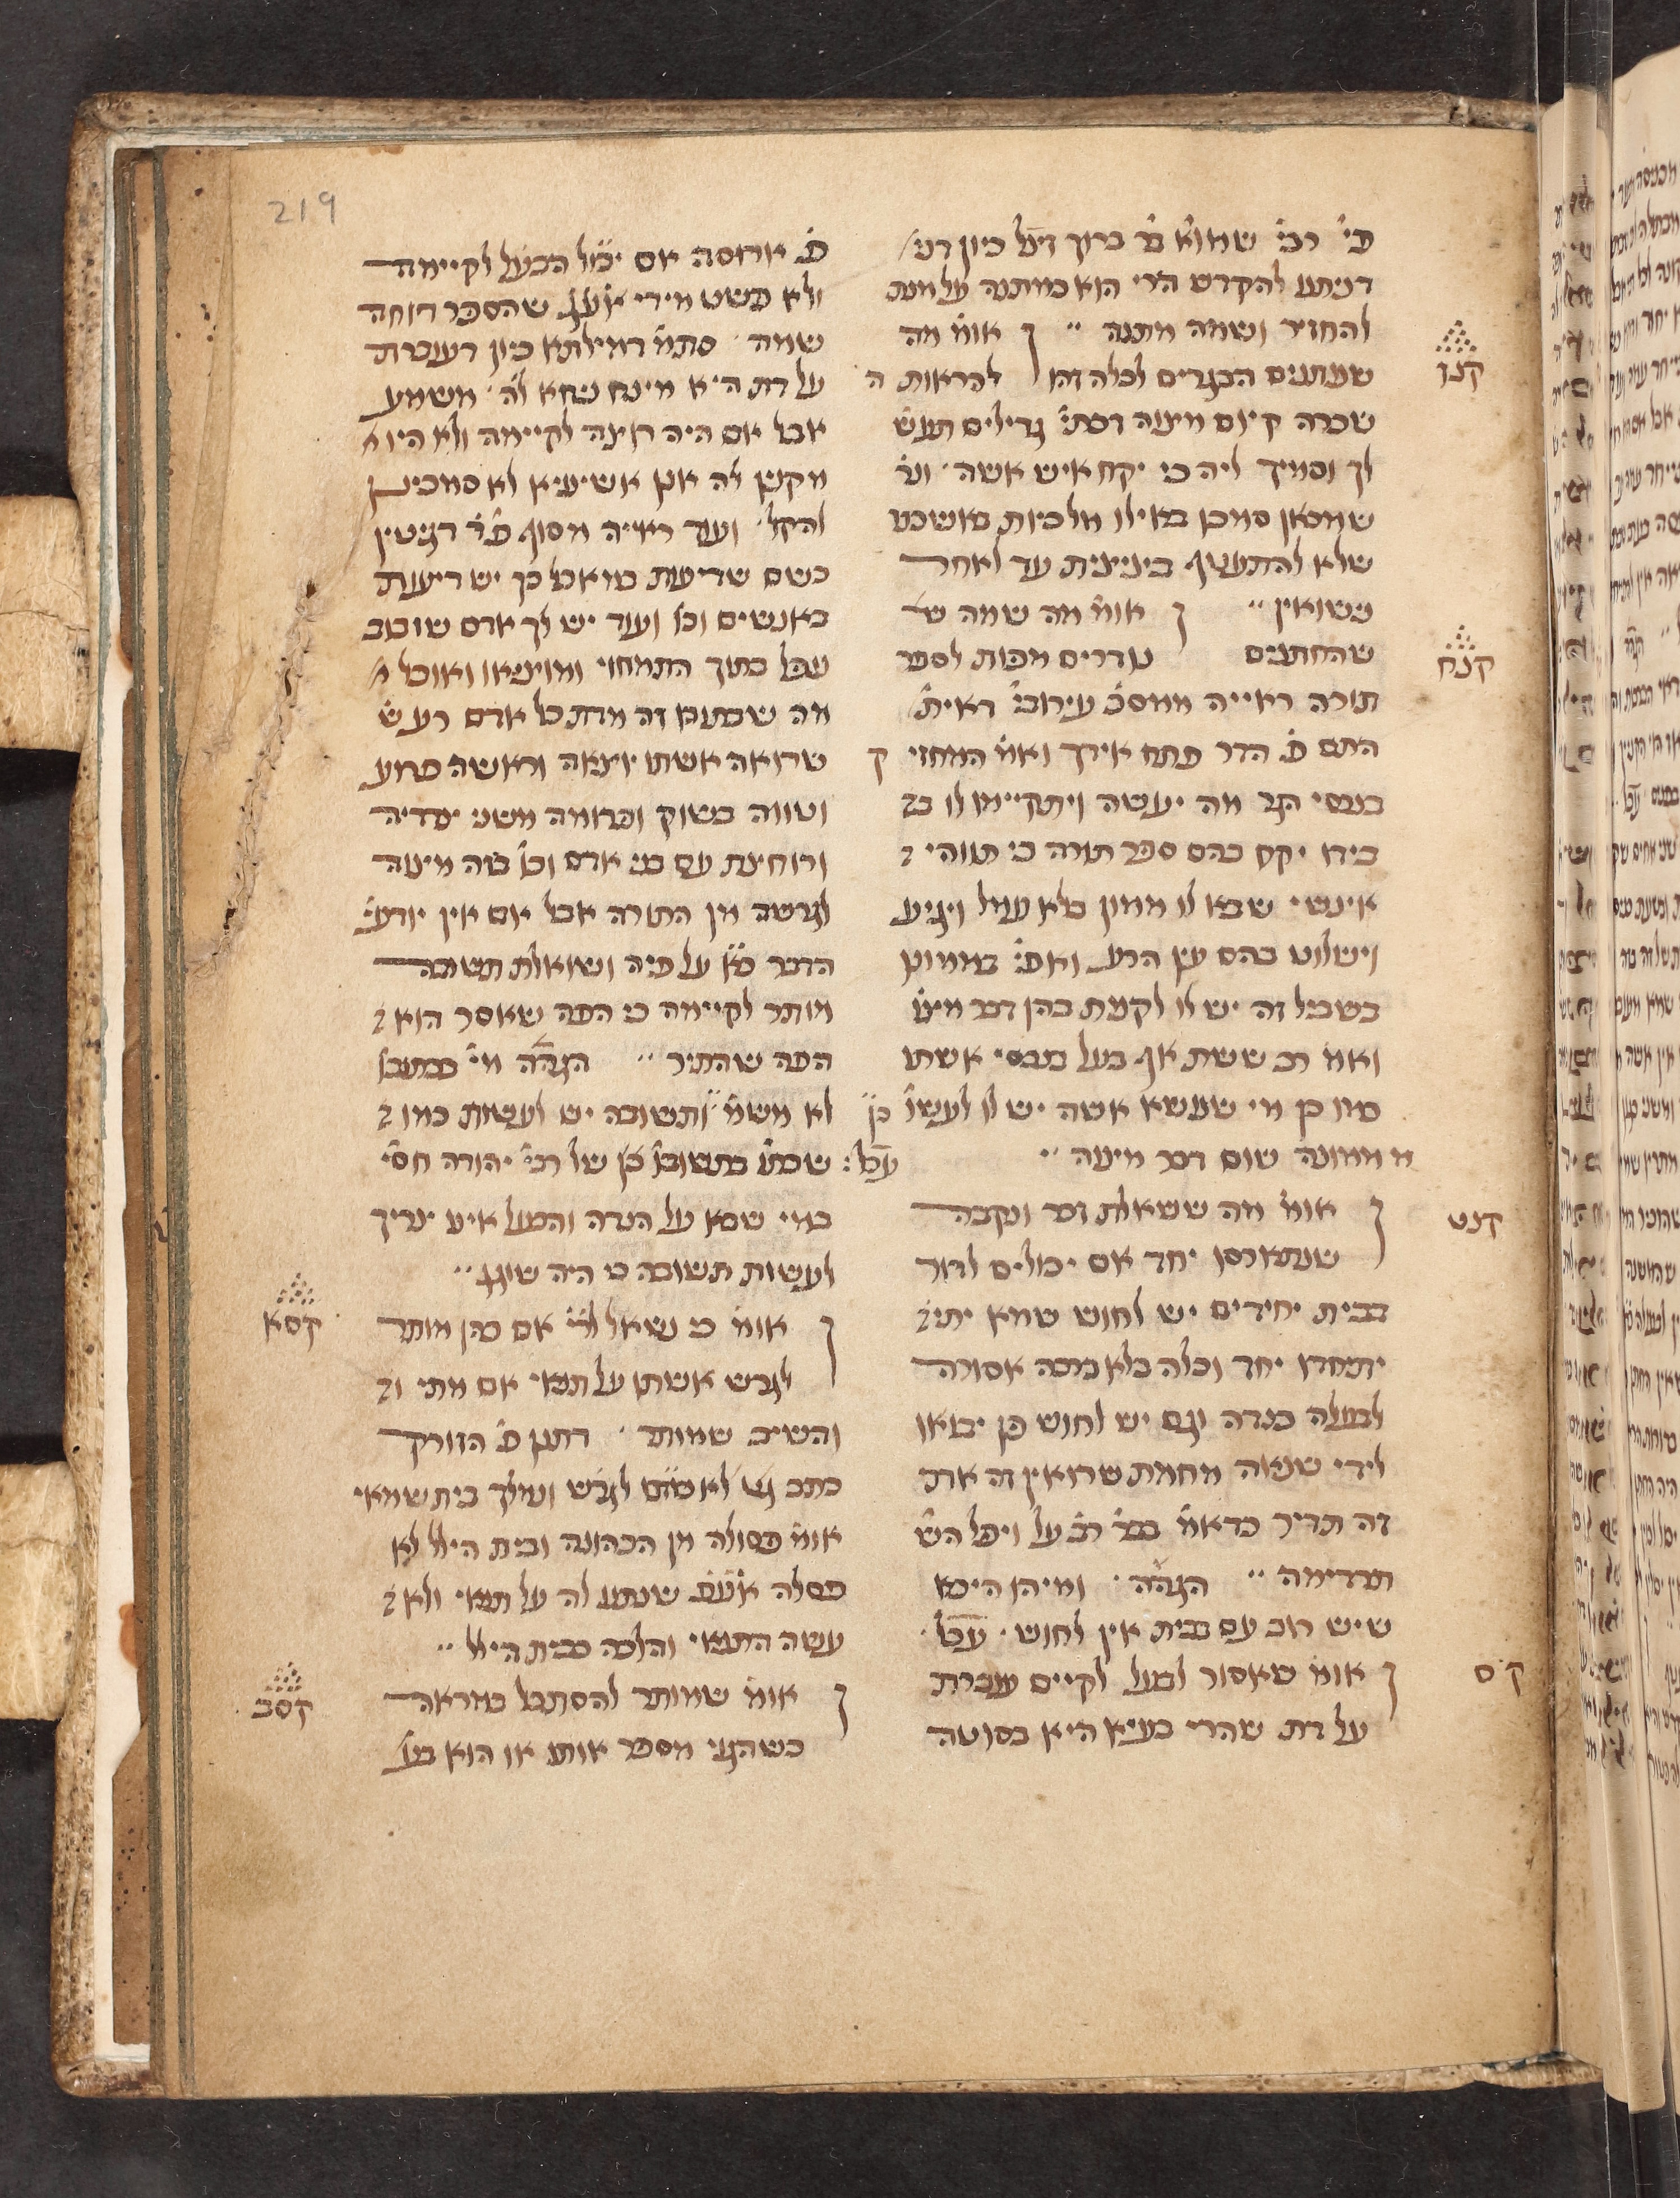 219
פי׳ רבי׳ שמוא׳ בר׳ ברוך דינ׳ל כיון דני׳
דניתנו להקדש הרי הוא כמתנה על מנת
להחזיר ושמה מתנה ״ ן אומ׳ מה
קנז
שמתנים הבגדים לכלה זהו להראות ה
שכרה קיום מצוה דכתי׳ גדילים תעש׳
לך וסמיך ליה כי יקח איש אשה׳ וע׳
שמכאן סמכו באילו מלכיות באשכנז
שלא להתעטף בציצית עד לאחר
נשואין ״ ן אומ׳ מה שמה ש
קנח
שהחתנים נודרים מכות לספר
תורה ראייה ממסכ׳ עירובי׳ דאית׳
התם פ׳ הדר פתח אידך ואמ׳ המחזי׳ ק
בנכסי הגר מה יעשה ויתקיימו לו ב
בידו יקח בהם ספר תורה כי תווהי
אינשי שבא לו ממון בלא עמל ויגיע
וישלוט בהם עין הרע ואפי׳ בממון
בשביל זה יש לו לקנות בהן דבר מצו׳
ואמ׳ רב ששת אף בעל בנכסי אשתו
כמו כן מי שנשא אשה יש לו לעשו׳ כן׳
מ ממונה שום דבר מצוה ״
קנט
ן אומ׳ מה ששאלת זכר ונקבה
שנתארסו יחד אם יכולים לדור
בבית יחידים יש לחוש שמא יתי׳
יתיחדו יחד וכלה בלא ברכה אסורה
לבעלה כנדה וגם יש לחוש פן יבואו
לידי שנאה מחמת שרואין זה את
זה תדיר כדאמ׳ בבר׳ רב׳ על ויפל הש׳
תרדימה ״ הגה״ה׳ ומיהו היכא
שיש רוב עם בבית אין לחוש׳ עכ״ל׳
קס
ן אומ׳ שאסור לבעל לקיים עוברת
על דת שהרי בעיא היא בסוטה
פ׳ ארוסה אם יכול הבעל לקיימה
ולא פשט מידי אע״ג שהספר דוחה
שמה׳ סתמ׳ דמילתא כיון דעוברת
על דת היא מינח ניחא ליה׳ משמע
אבל אם היה רוצה לקיימה ולא היו
מקנין לה אין אשיעיא לא סמכינן
להקל׳ ועוד ראייה מסוף פ״ר דגיטין
כשם שדיעות במאכל כך יש דיעות
באנשים וכו׳ ועוד יש לך אדם שזבוב
נופל בתוך התמחוי ומוציאו ואוכל
מה שבתוכו זה מדת כל אדם רע ש׳
שרואה אשתו יוצאה וראשה פרוע
וטווה בשוק ופרומה משני צדדיה
ורוחצת עם בני אדם וכו׳ בזה מצוה
לגרשה מן התורה אבל אם אין יודע׳
הדבר כ״א על פיה ושואלת תשובה
מותר לקיימה כי הפה שאסר הוא
הפה שהתיר ״ הגה״ה מ״י בכתובו׳
לא משמ׳ ותשובה יש לעשות כמו
עכ״ל: שכת׳ בתשובו׳ כ״ן של רבי׳ יהודה חסי׳
במי שבא על הנדה והבעל אינו צריך
לעשות תשובה כי היה שוגג ״
קסא
ן אומ׳ כי נשאל לר׳ אם כהן מותר
לגרש אשתו על תנאי אם מתי ו
והשיב שמותר׳ דתנן פ׳ הזורק
כתב גט לאשתו לגרש ונמלך בית שמאי
אומ׳ פסולה מן הכהונה ובית הילל לא
פסלה אע״פ שנתנו לה על תנאי ולא
עשה התנאי והלכה כבית הילל ״
קסב
ן אומ׳ שמותר להסתכל במראה
כשהגוי מספר אותו או הוא בע׳